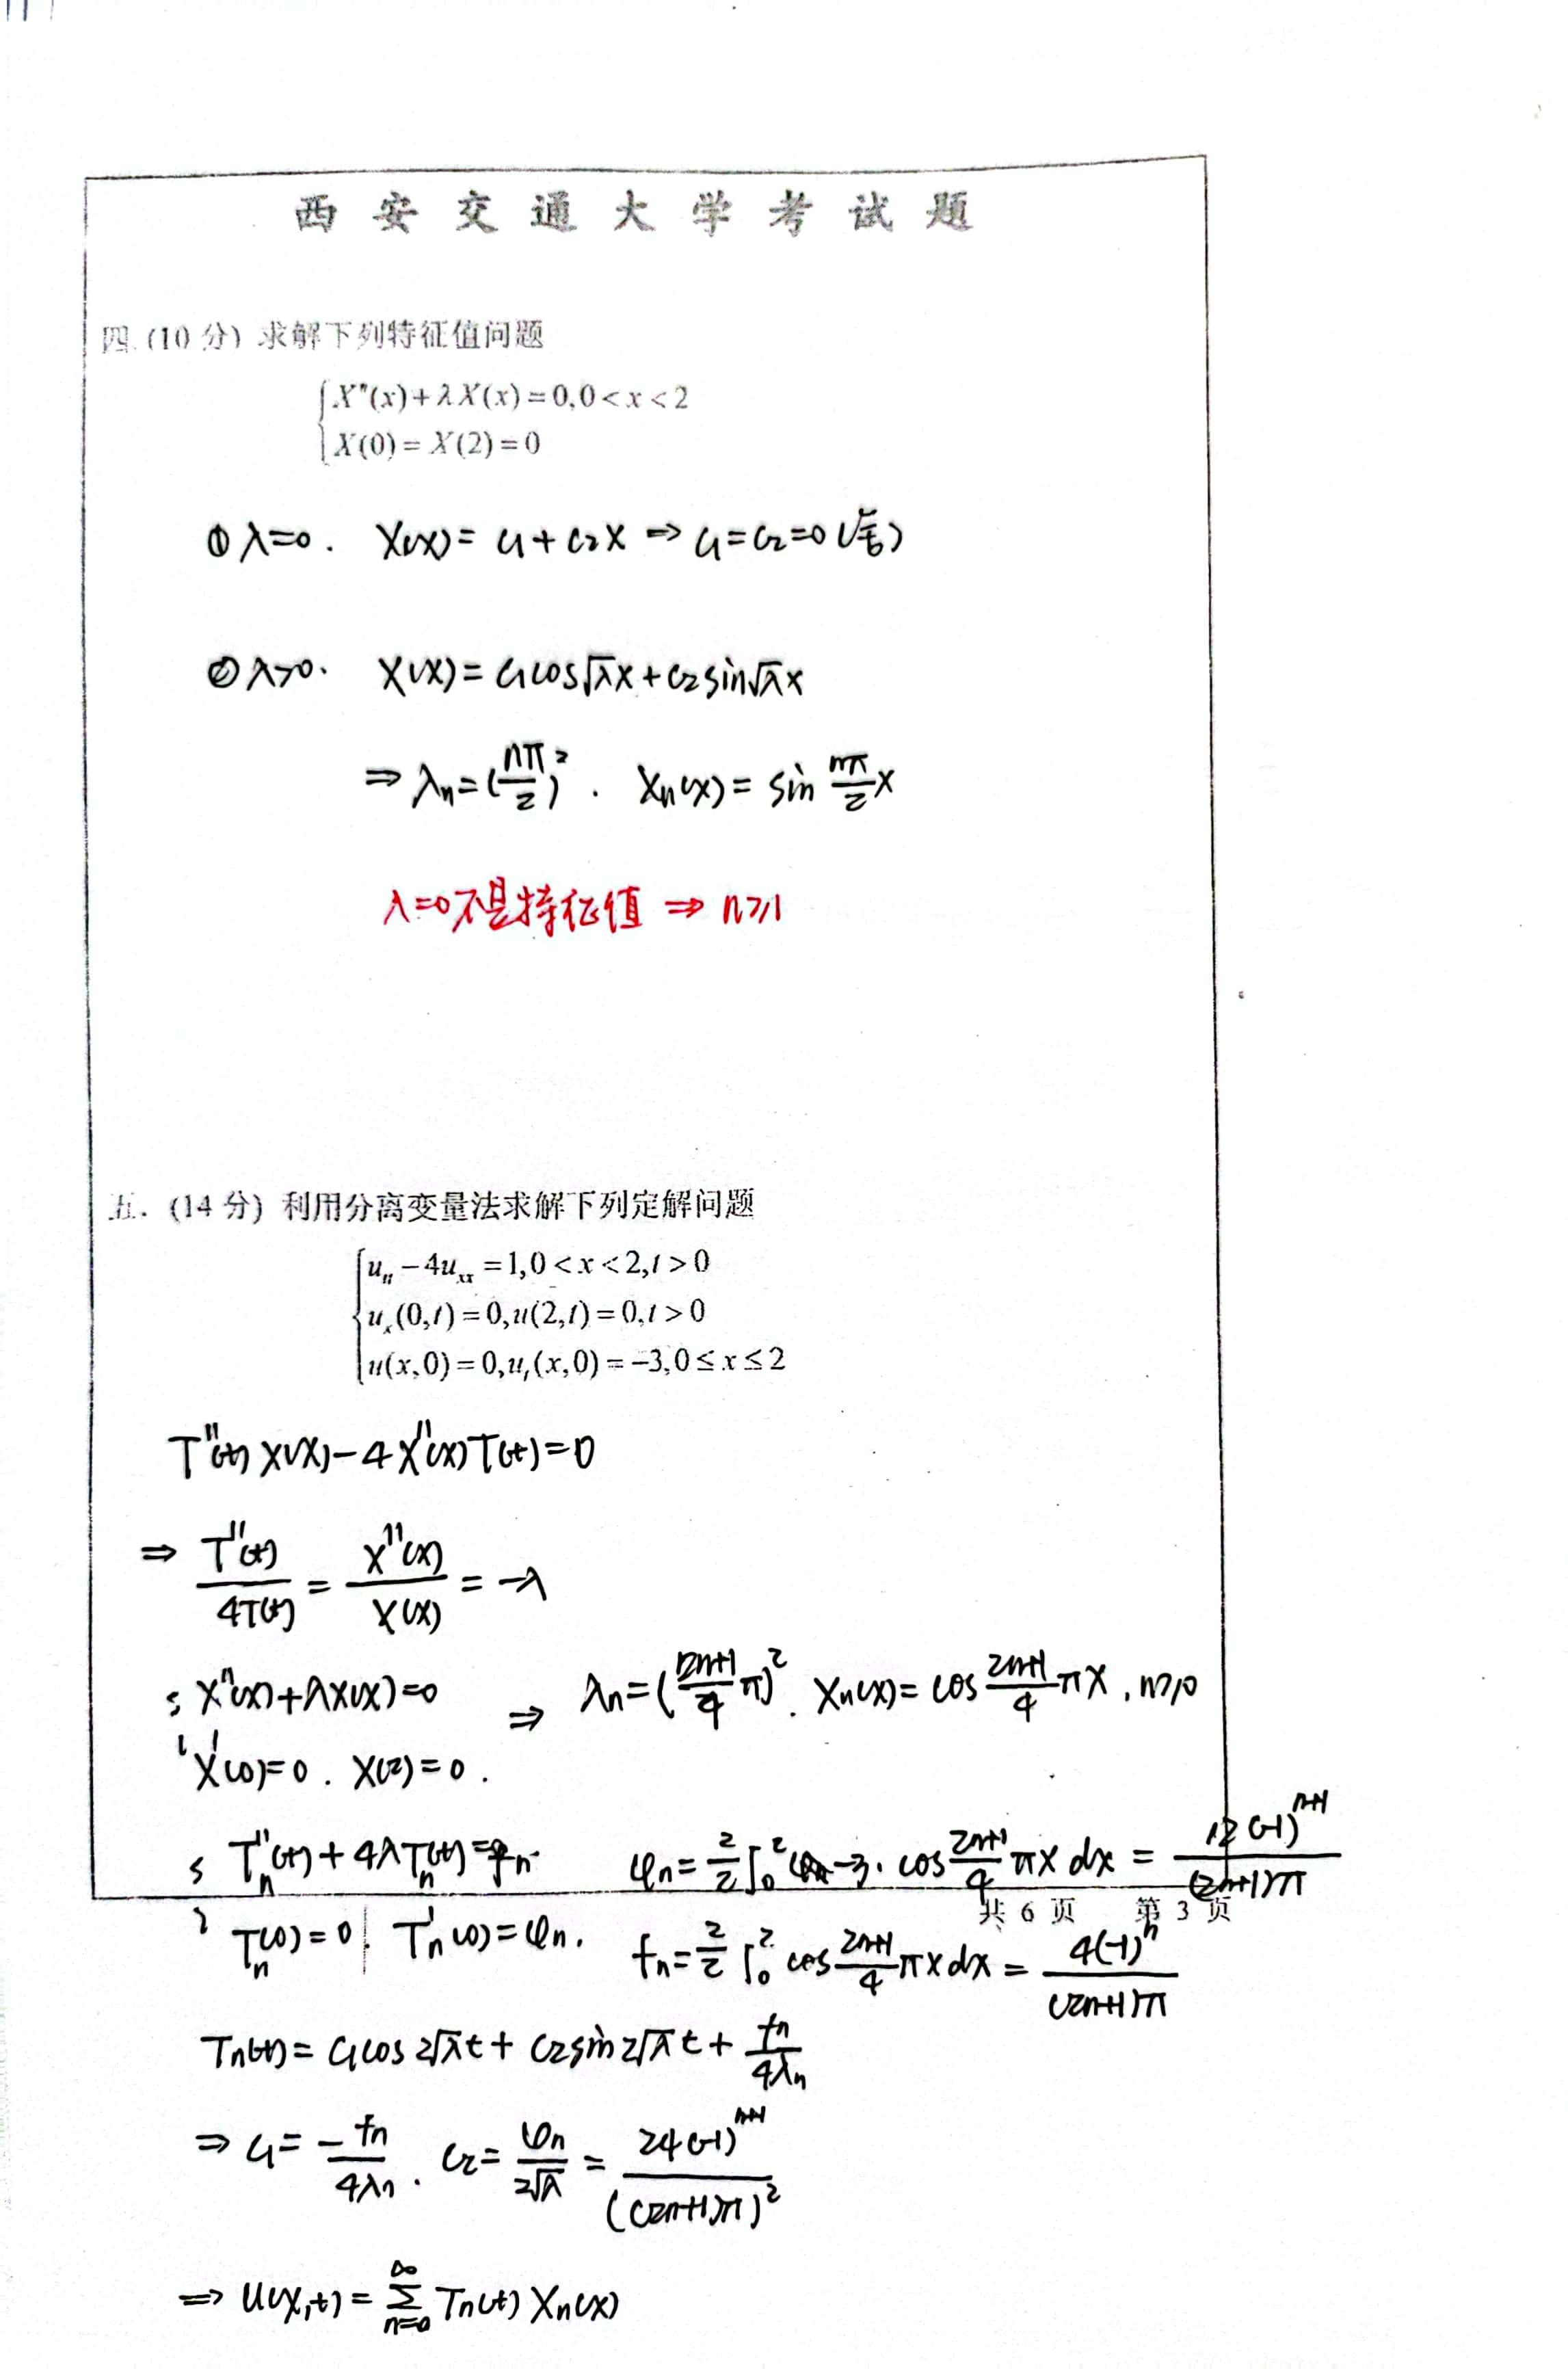 西安交通大学考试题
四.(10 分) 求解下列特征值问题
X"(x)+λX(x)=0,0<x<2
X(0)=X(2)=0
① λ=0. X(x)=C₁+C₂x ⇒ C₁=C₂=0 (舍)
② λ>0. X(x)=C₁cos√λx+C₂sin√λx
⇒ λₙ=(nπ/2)². Xₙ(x)=sin nπ/2 x
λ=0不是特征值 ⇒ n≥1
五. (14 分) 利用分离变量法求解下列定解问题
uₜₜ-4uₓₓ=1,0<x<2,t>0
uₓ(0,t)=0,u(2,t)=0,t>0
u(x,0)=0,uₜ(x,0)=-3,0≤x≤2
T"(t)X(x)-4X"(x)T(t)=0
⇒ T"(t)/4T(t) = X"(x)/X(x) = -λ
X"(x)+λX(x)=0 ⇒ λₙ=(2n+1/4 π)². Xₙ(x)=cos 2n+1/4 πx, n≥0
X'(0)=0. X(2)=0.
Tₙ"(t)+4λTₙ(t)=fₙ. φₙ=2/2∫₀² -3·cos 2n+1/4 πx dx = 12(-1)ⁿ⁺¹/(2n+1)π
共 6 页 第 3 页
Tₙ(0)=0. Tₙ'(0)=φₙ. fₙ=2/2∫₀² cos 2n+1/4 πx dx = 4(-1)ⁿ/(2n+1)π
Tₙ(t)=C₁cos2√λt+C₂sin2√λt+fₙ/4λₙ
⇒ C₁=-fₙ/4λₙ. C₂=φₙ/2√λ = 24(-1)ⁿ⁺¹/((2n+1)π)²
⇒ u(x,t)=∑ₙ₌₀^∞ Tₙ(t)Xₙ(x)